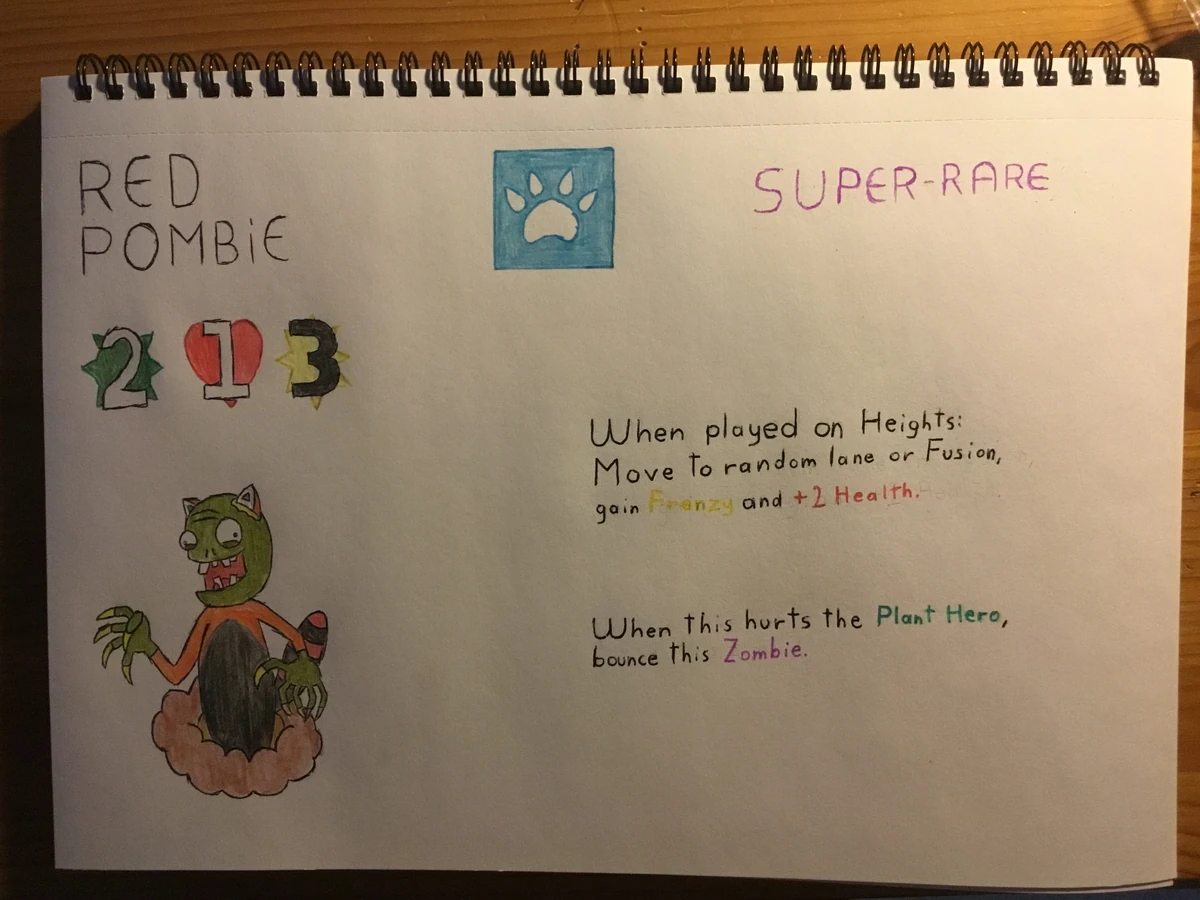 RED
POMBiE
SUPER-RARE
2 1 3
When played on Heights:
Move to random lane or Fusion,
gain Frenzy and +2 Health.
When this hurts the Plant Hero,
bounce this Zombie.